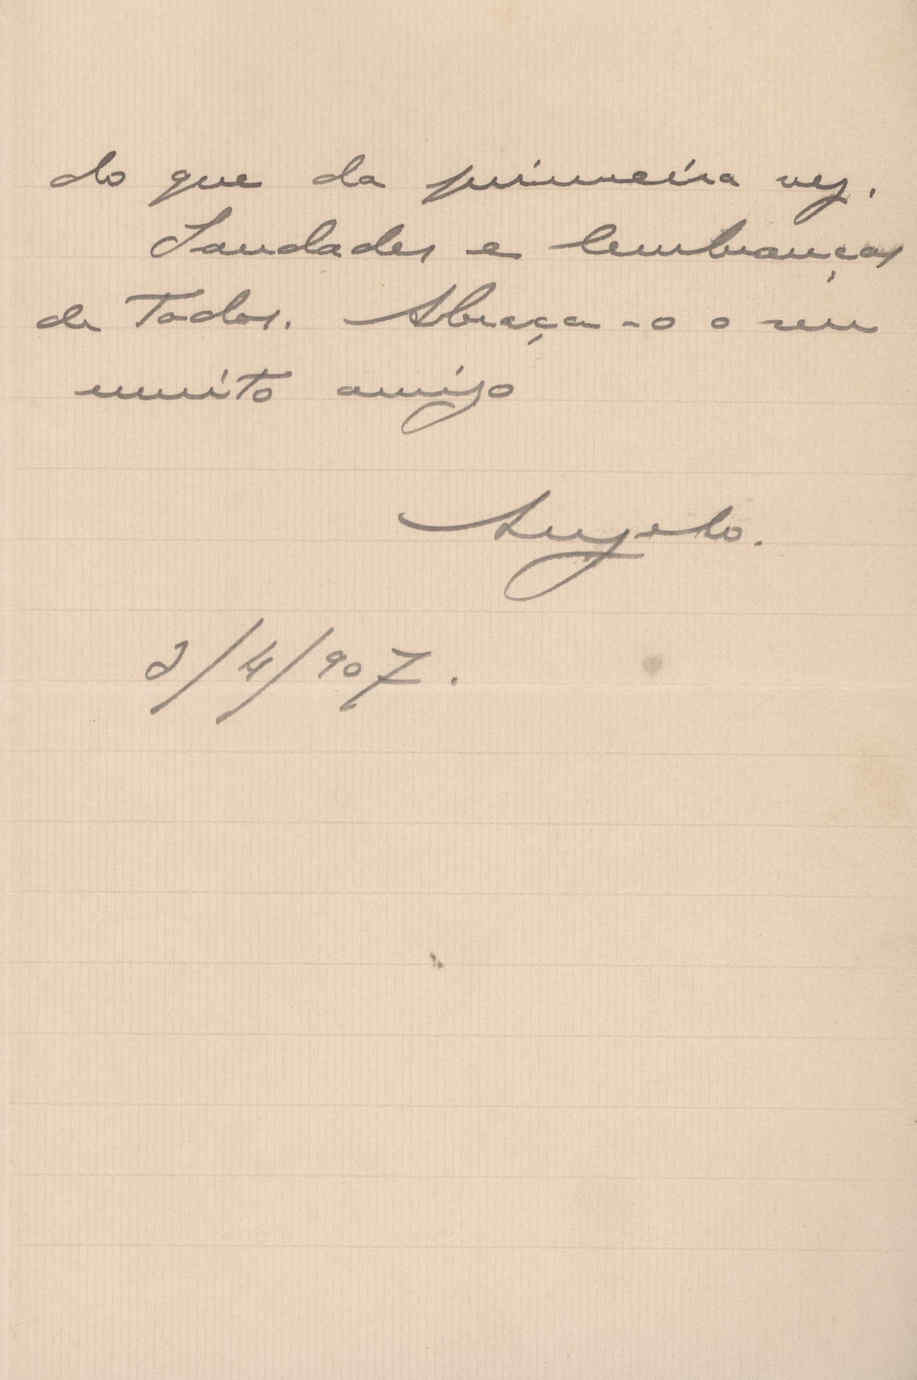 do que da primeira vez.
Saudades e lembranças
de Todos. Abraça-o o seu
muito amigo
Angelo.
2/4/907.